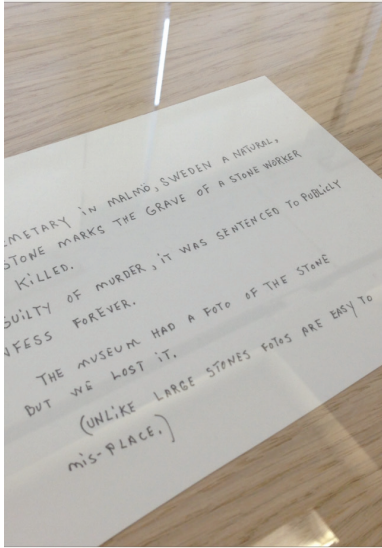 EMETARY IN MALMÖ, SWEDEN A NATURAL,
STONE MARKS THE GRAVE OF A STONE WORKER
KILLED.
GUILTY OF MURDER, IT WAS SENTENCED TO PUBLICLY
NFESS FOREVER.
THE MUSEUM HAD A FOTO OF THE STONE
BUT WE LOST IT.
(UNLIKE LARGE STONES FOTOS ARE EASY TO
MIS-PLACE.)